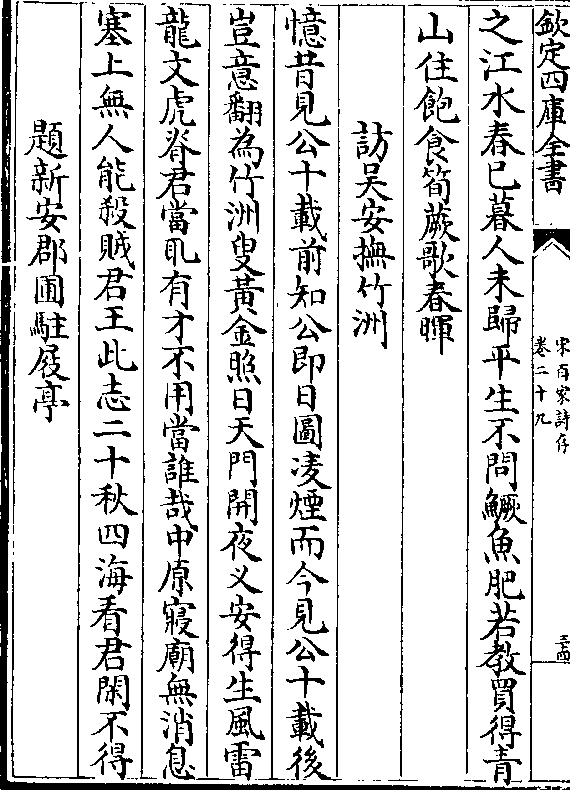 欽定四庫全書
宋百家詩存
卷二十九
三四
之江水春已暮人未歸平生不問鱖魚肥若教買得青
山住飽食筍蕨歌春暉
訪吴安撫竹洲
憶昔見公十載前知公即日圖凌煙而今見公十載後
豈意翻為竹洲叟黃金照日天門開夜义安得生風雷
龍文虎脊君當乳有才不用當誰哉中原寢廟無消息
塞上無人能殺賊君王此志二十秋四海看君閑不得
題新安郡圃駐屐亭